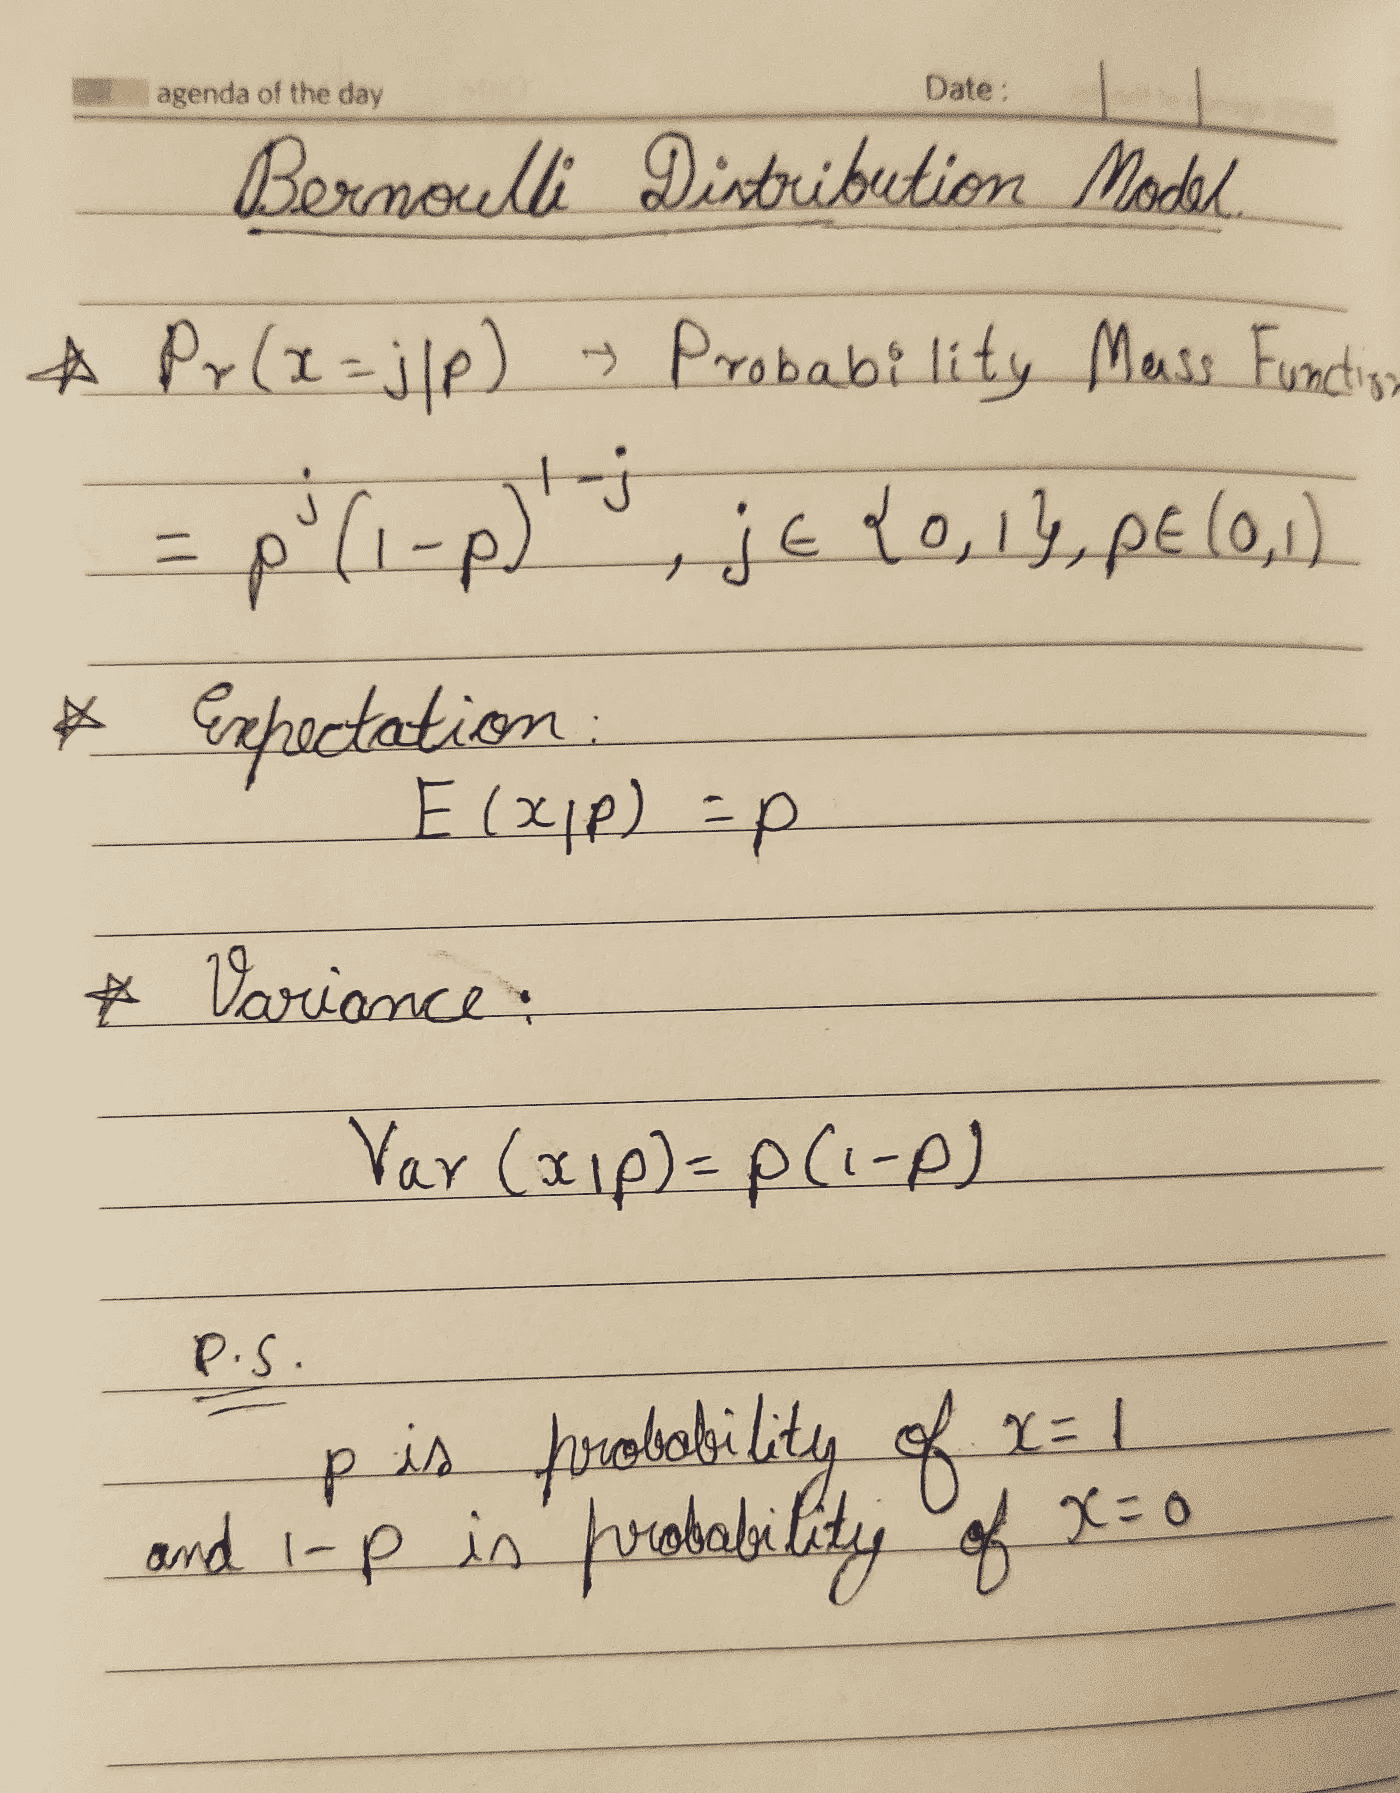 agenda of the day Date :
Bernoulli Distribution Model.
☆ Pr(x=j|p) → Probability Mass Function
= p^j (1-p)^{1-j} , j ∈ {0,1}, p∈(0,1)
☆ Expectation :
E (x|p) = p
☆ Variance :
Var (x|p) = p(1-p)
P.S.
p is probability of x=1
and 1-p is probability of x=0